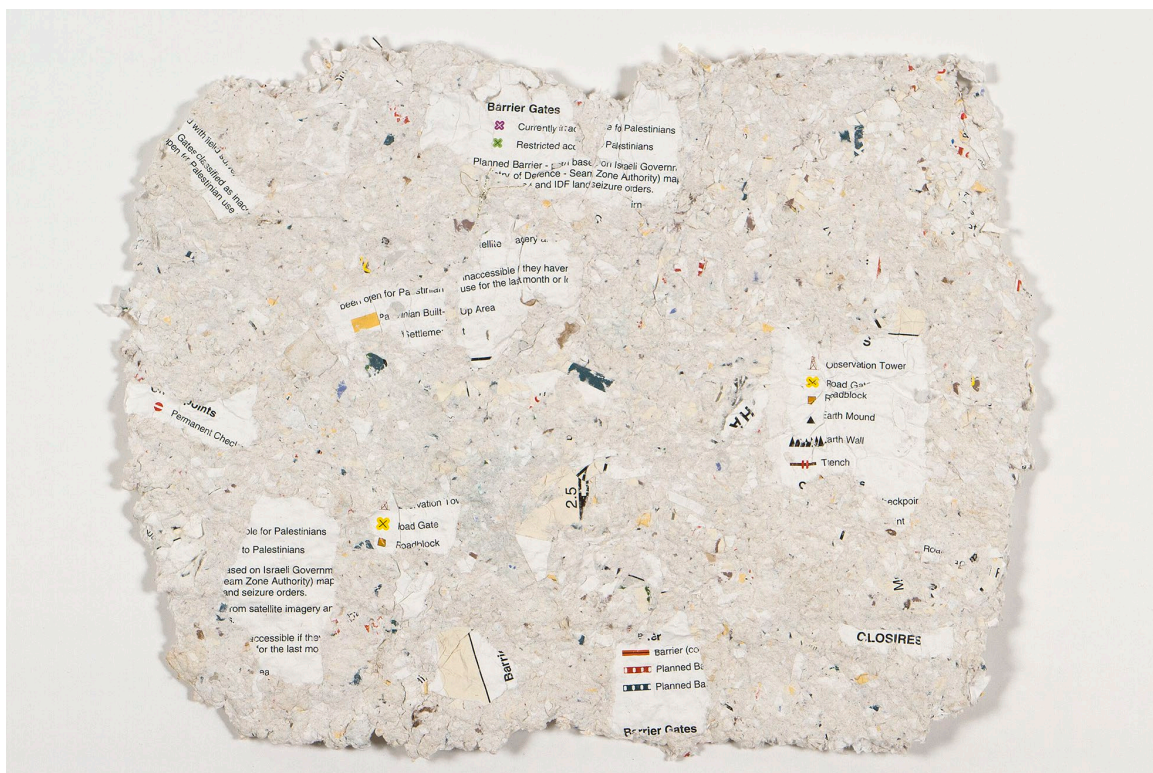 Barrier Gates
Currently inac e to Palestinians
Restricted acc Palestinians
Planned Barrier - path based on Israeli Governm
try of Defence - Seam Zone Authority) map
and IDF land seizure orders.
d with field
Gates classified as inac
open for Palestinian use
ellite agery
naccessible if they haven
use for the last month or lo
been open for Palestinian
Pa inian Built- Up Area
Settleme t
S
Observation Tower
Road Gate
Roadblock
Earth Mound
Earth Wall
Trench
heckpoin
nt
oints
Permanent Chec
HA
2.5
rvation Tow
oad Gate
Roadblock
ble for Palestinians
to Palestinians
ased on Israeli Governm
eam Zone Authority) map
and seizure orders.
rom satellite imagery an
s.
accessible if they
for the last mo
ea
Roa
M
CLOSIRES
Barri
er
Barrier (co
Planned Ba
Planned Ba
Barrier Gates